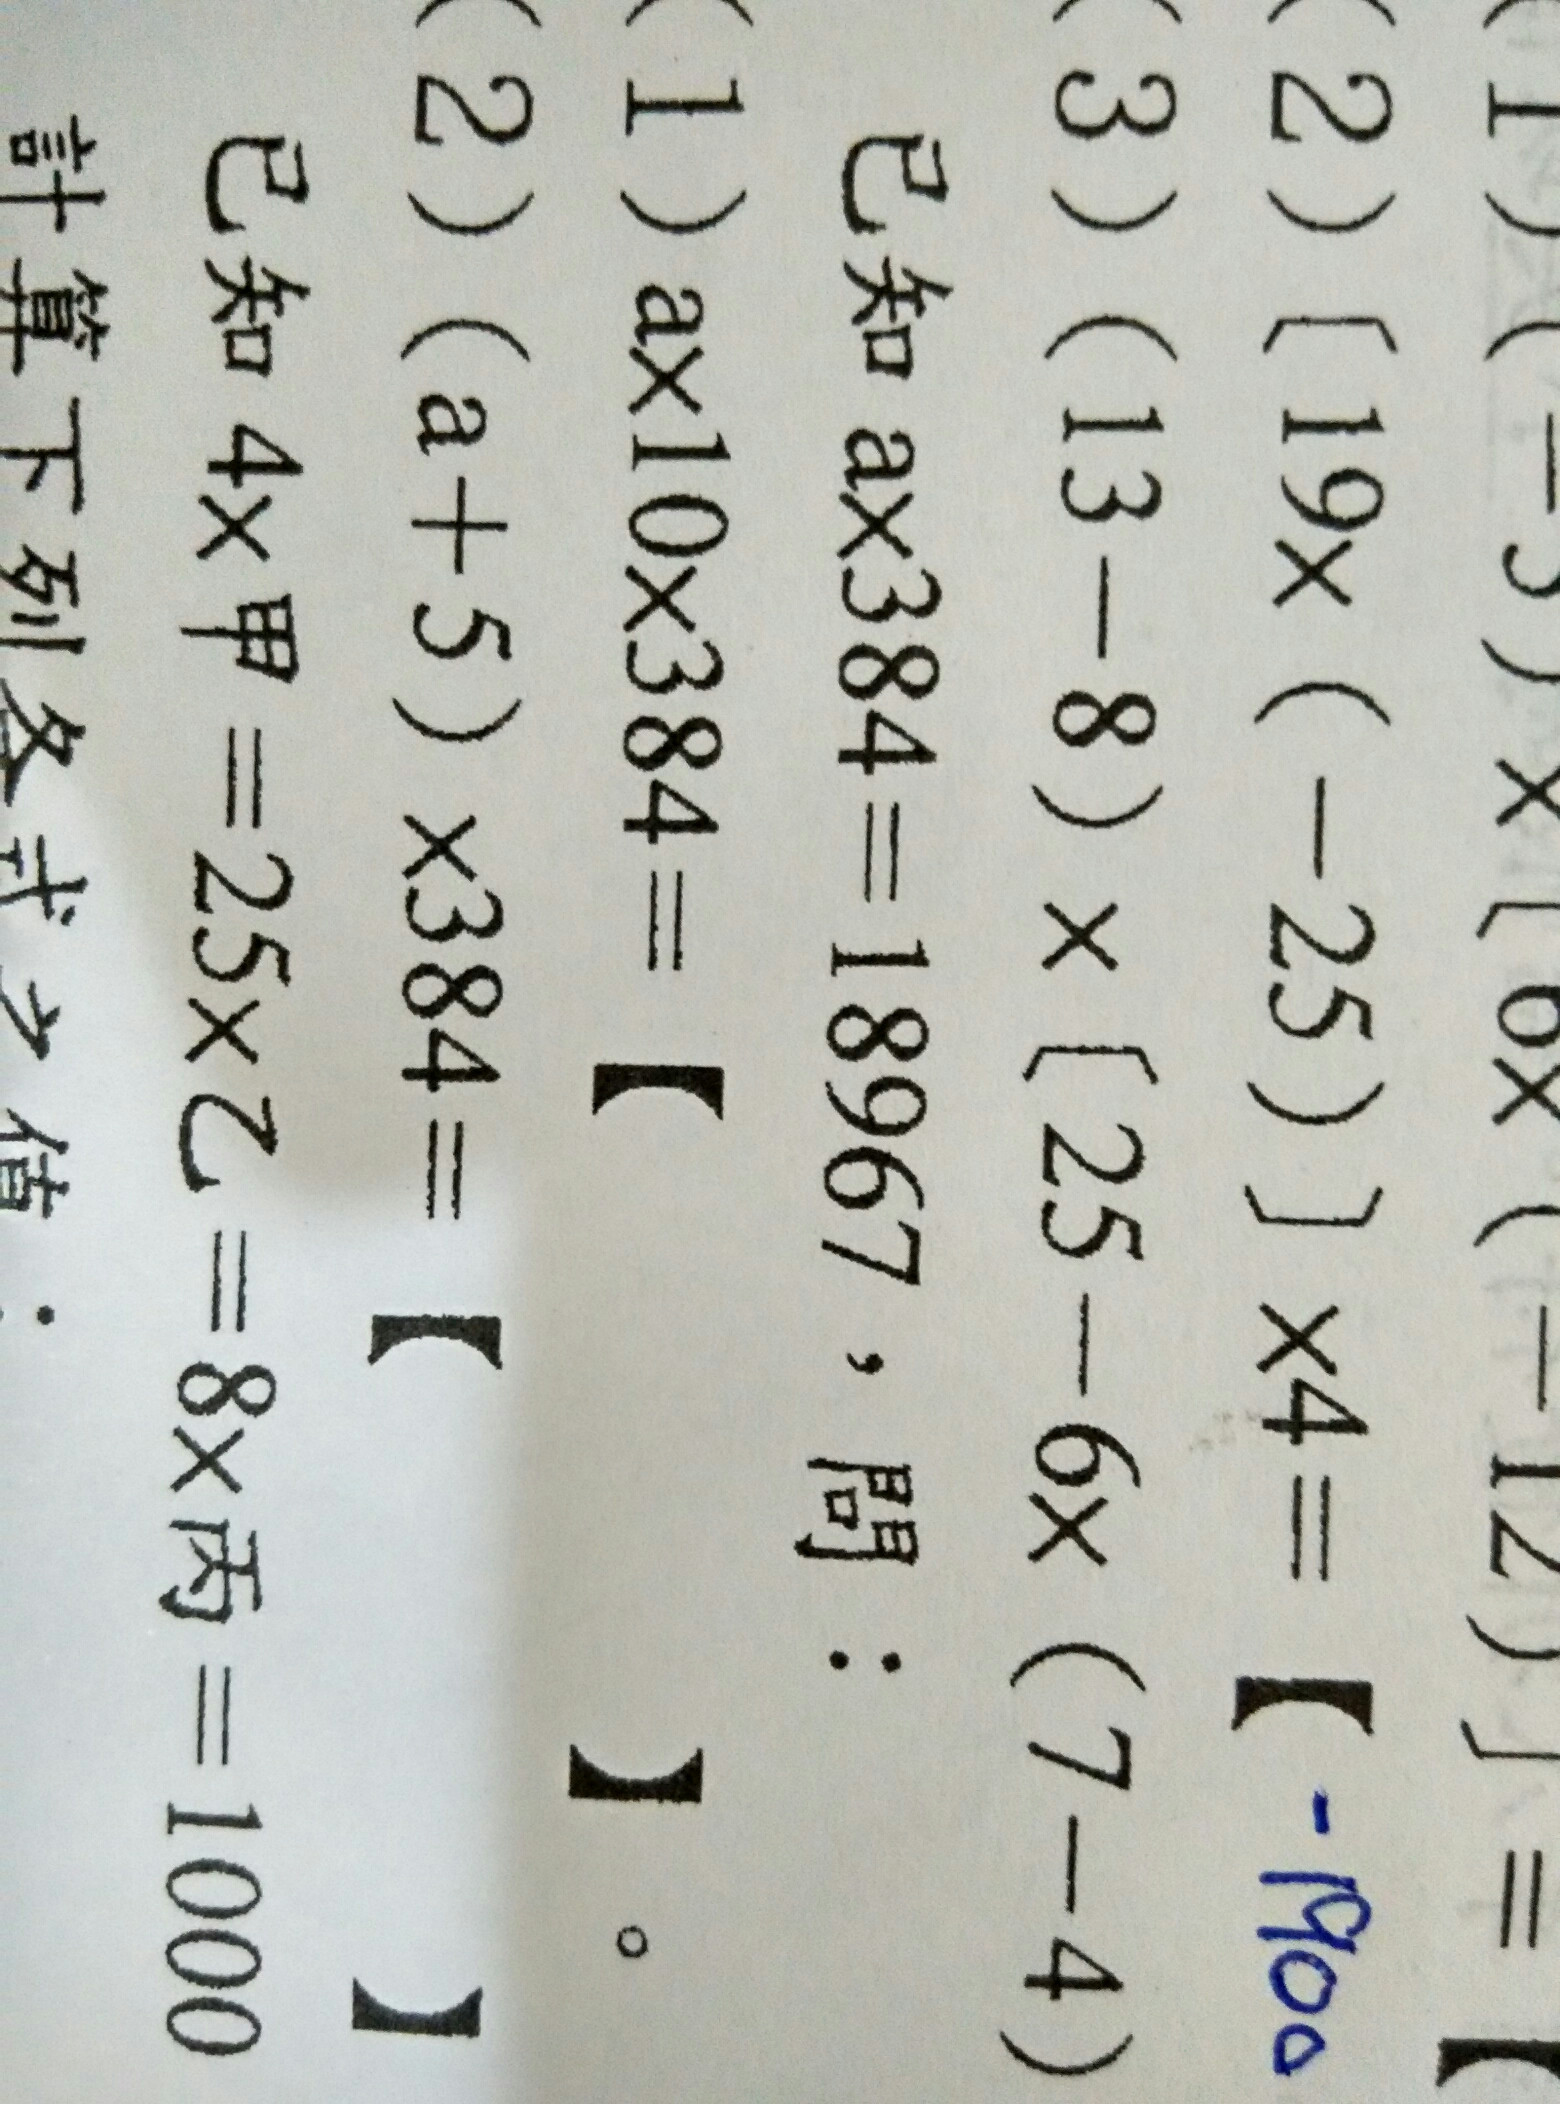 (1)(-5)x〔6x(-12)〕=【
(2)〔19x(-25)〕x4=【-1900
(3)(13-8)x〔25-6x(7-4)
已知ax384=18967,問:
(1)ax10x384=【 】。
(2)(a+5)x384=【 】
已知4x甲=25x乙=8x丙=1000
計算下列各式之值: